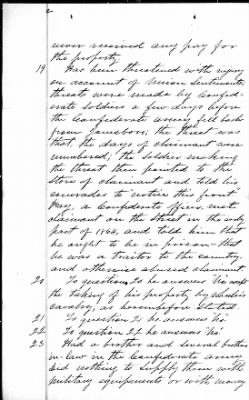 never received any pay for
the property
19 Has been threatened with injury
on account of Union Sentiments,
threats were made by Confed-
erate Soldiers a few days before
the Confederate army fell back
from Jonesboro; the threat was
that the days of claimant were
numbered; the soldier making
the threat then pointed to the
store of claimant and told his
comrades to notice this for
a Confederate officer met
claimant on the street in the early
part of 1864, and told him that
he ought to be in prison - that
he was a traitor to the country,
and otherwise abused claimant.
20 To question 20 he answers 'No' except
the taking of his property by
cavalry, as heretofore stated
21 To question 21 he answers 'No'
22 To question 22 he answers 'No'
23 Had a brother and several brothers
in-law in the Confederate army
did nothing to supply them with
military equipments or with money